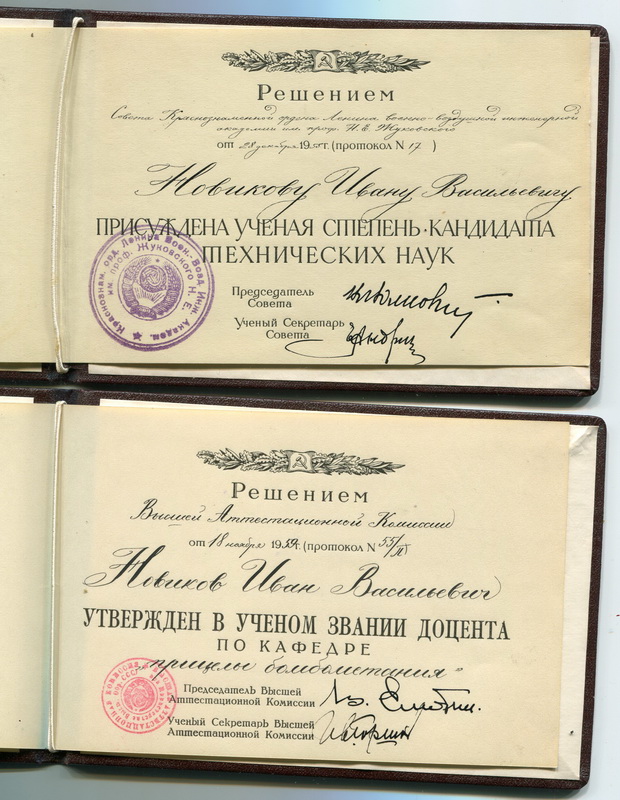 Решением
Совета Краснознаменной ордена Ленина военно-воздушной инженерной
академии им. проф. Н.Е. Жуковского
от 28 декабря 195 г. (протокол N 17 )
Новикову Ивану Васильевичу
ПРИСУЖДЕНА УЧЕНАЯ СТЕПЕНЬ КАНДИДАТА
ТЕХНИЧЕСКИХ НАУК
Председатель
Совета
Ученый Секретарь
Совета
Краснознам. орд. Ленина Воен.-Возд. Инж. Академ.
им. проф. Жуковского Н. Е.
Решением
Высшей Аттестационной Комиссии
от 18 ноября 1959 г. (протокол N 55/П)
Новиков Иван Васильевич
УТВЕРЖДЕН В УЧЕНОМ ЗВАНИИ ДОЦЕНТА
ПО КАФЕДРЕ
„прицелы бомбометания"
Председатель Высшей
Аттестационной Комиссии
Ученый Секретарь Высшей
Аттестационной Комиссии